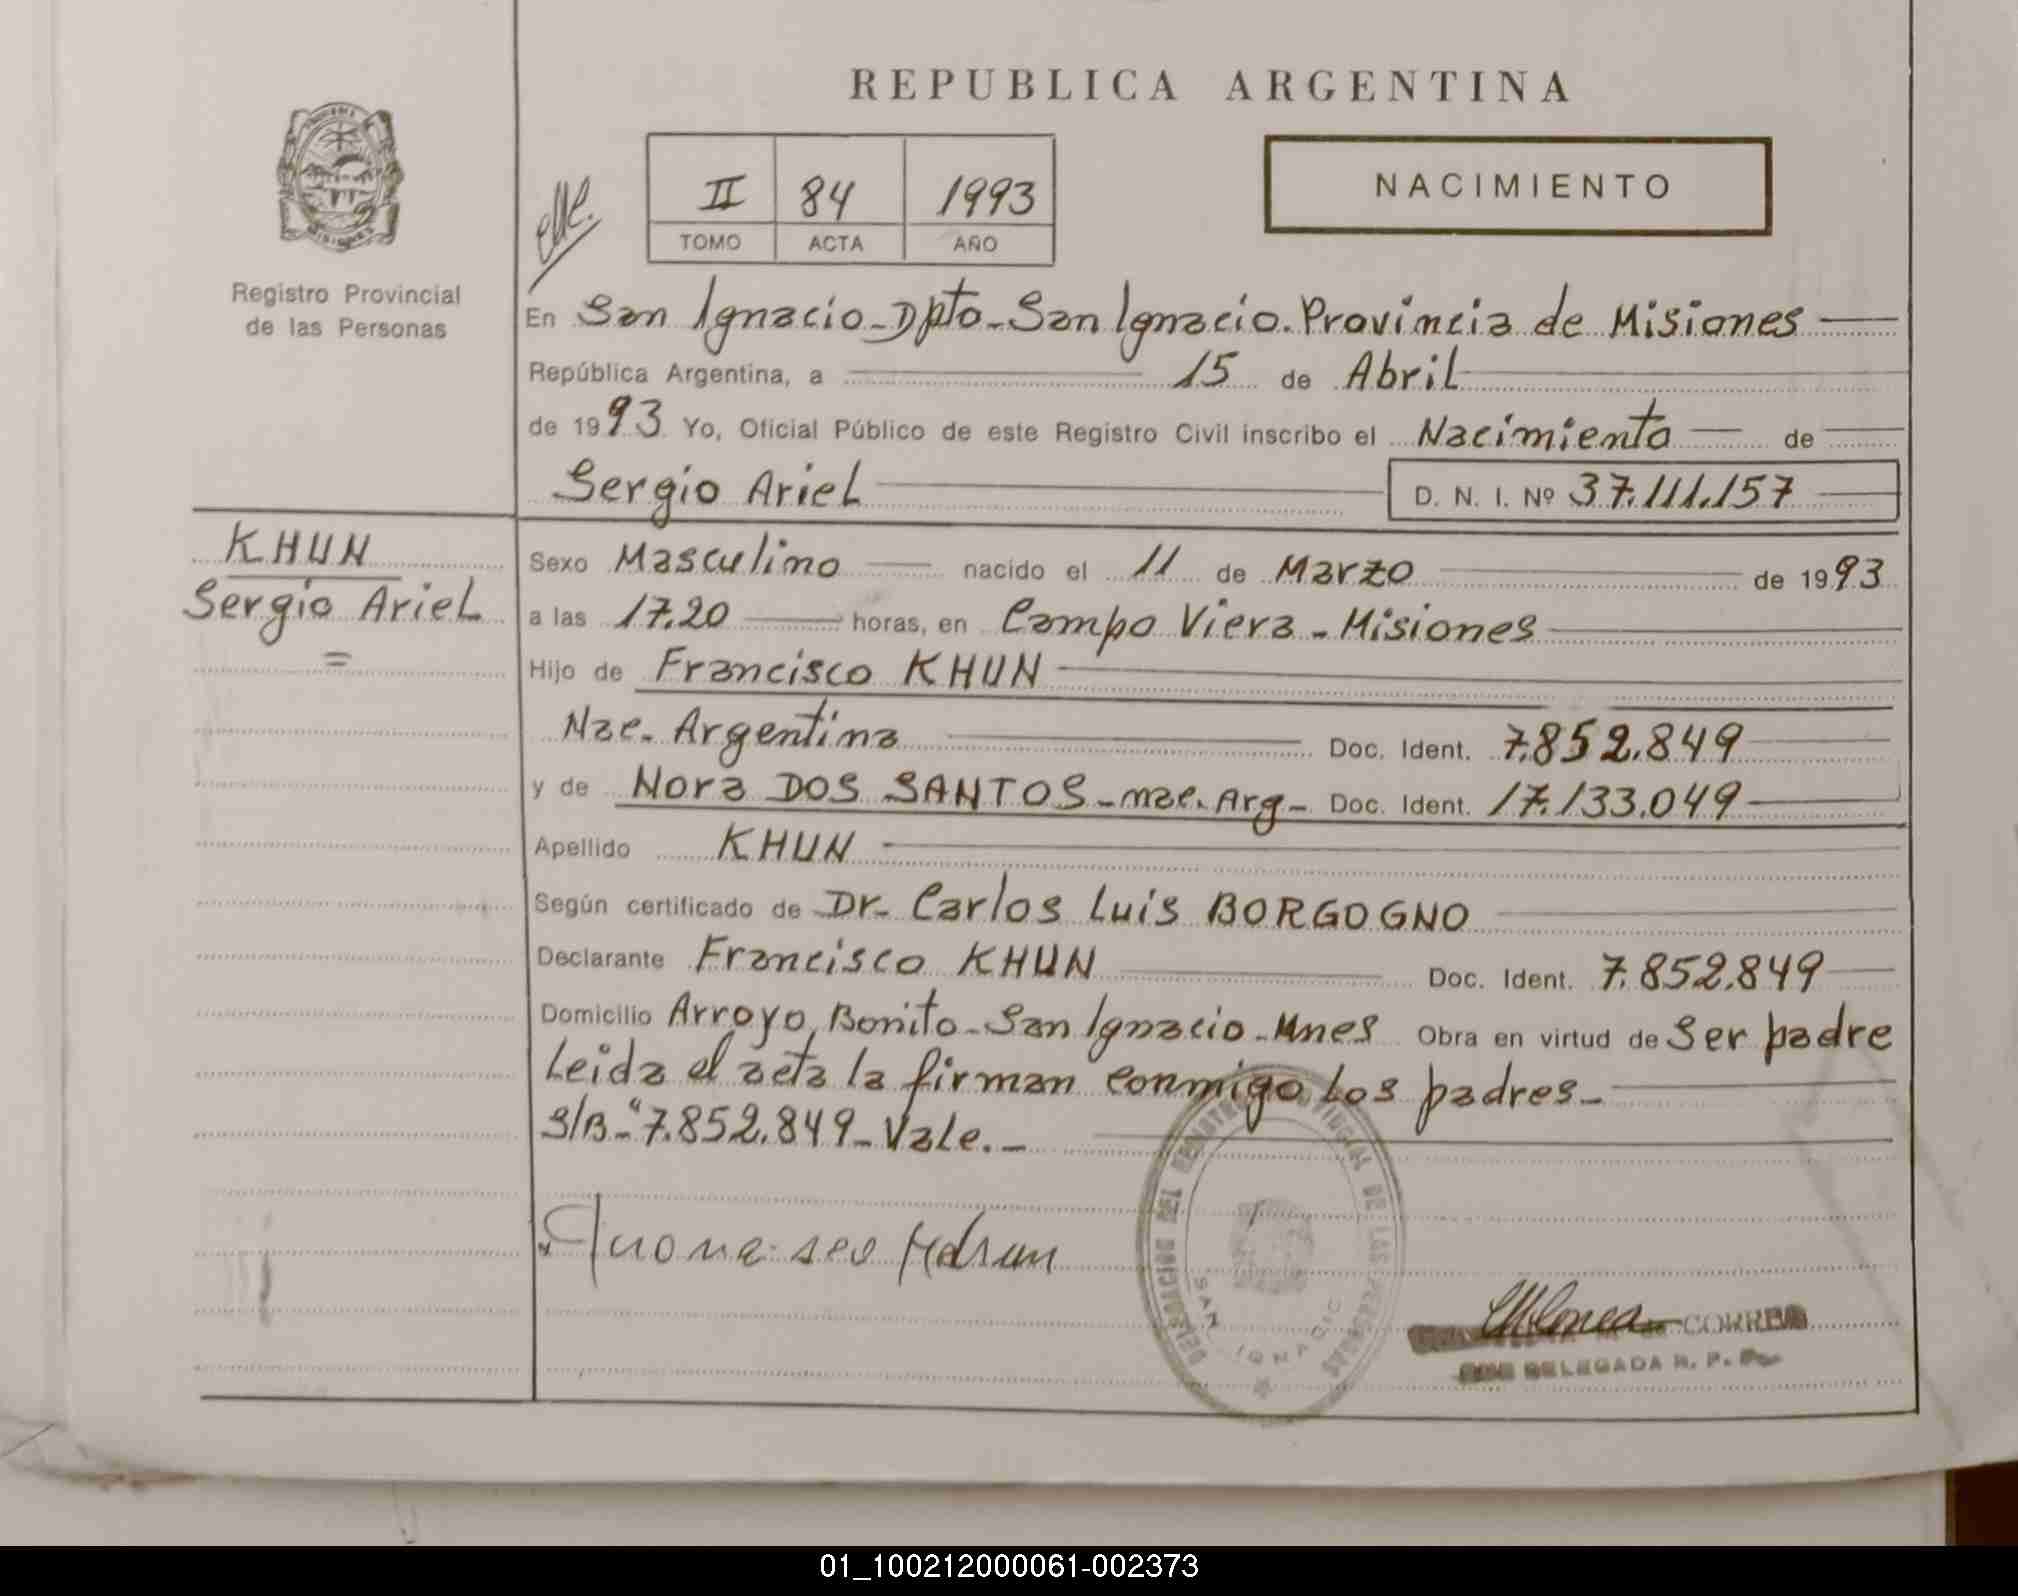 REPUBLICA ARGENTINA
II 84 1993
TOMO ACTA AÑO
NACIMIENTO
MISIONES
Registro Provincial
de las Personas
En San Ignacio - Dpto - San Ignacio. Provincia de Misiones
República Argentina, a 15 de Abril
de 1993 Yo, Oficial Público de este Registro Civil inscribo el Nacimiento de
Sergio Ariel D. N. I. Nº 37.111.157
KHUN
Sergio Ariel
=
Sexo Masculino nacido el 11 de Marzo de 1993
a las 17.20 horas, en Campo Viera - Misiones
Hijo de Francisco KHUN
Nac. Argentina Doc. Ident. 7.852.849
y de Nora DOS SANTOS - nac. Arg - Doc. Ident. 17.133.049
Apellido KHUN
Según certificado de Dr. Carlos Luis BORGOGNO
Declarante Francisco KHUN Doc. Ident. 7.852.849
Domicilio Arroyo Bonito - San Ignacio - Mnes Obra en virtud de Ser padre
Leida el acta la firman conmigo los padres -
S/B - "7.852.849 - Vale. -
DELEGACION DEL REGISTRO PROVINCIAL DE LAS PERSONAS
SAN IGNACIO
CORREA
DELEGADA R. P. P.
01_100212000061-002373